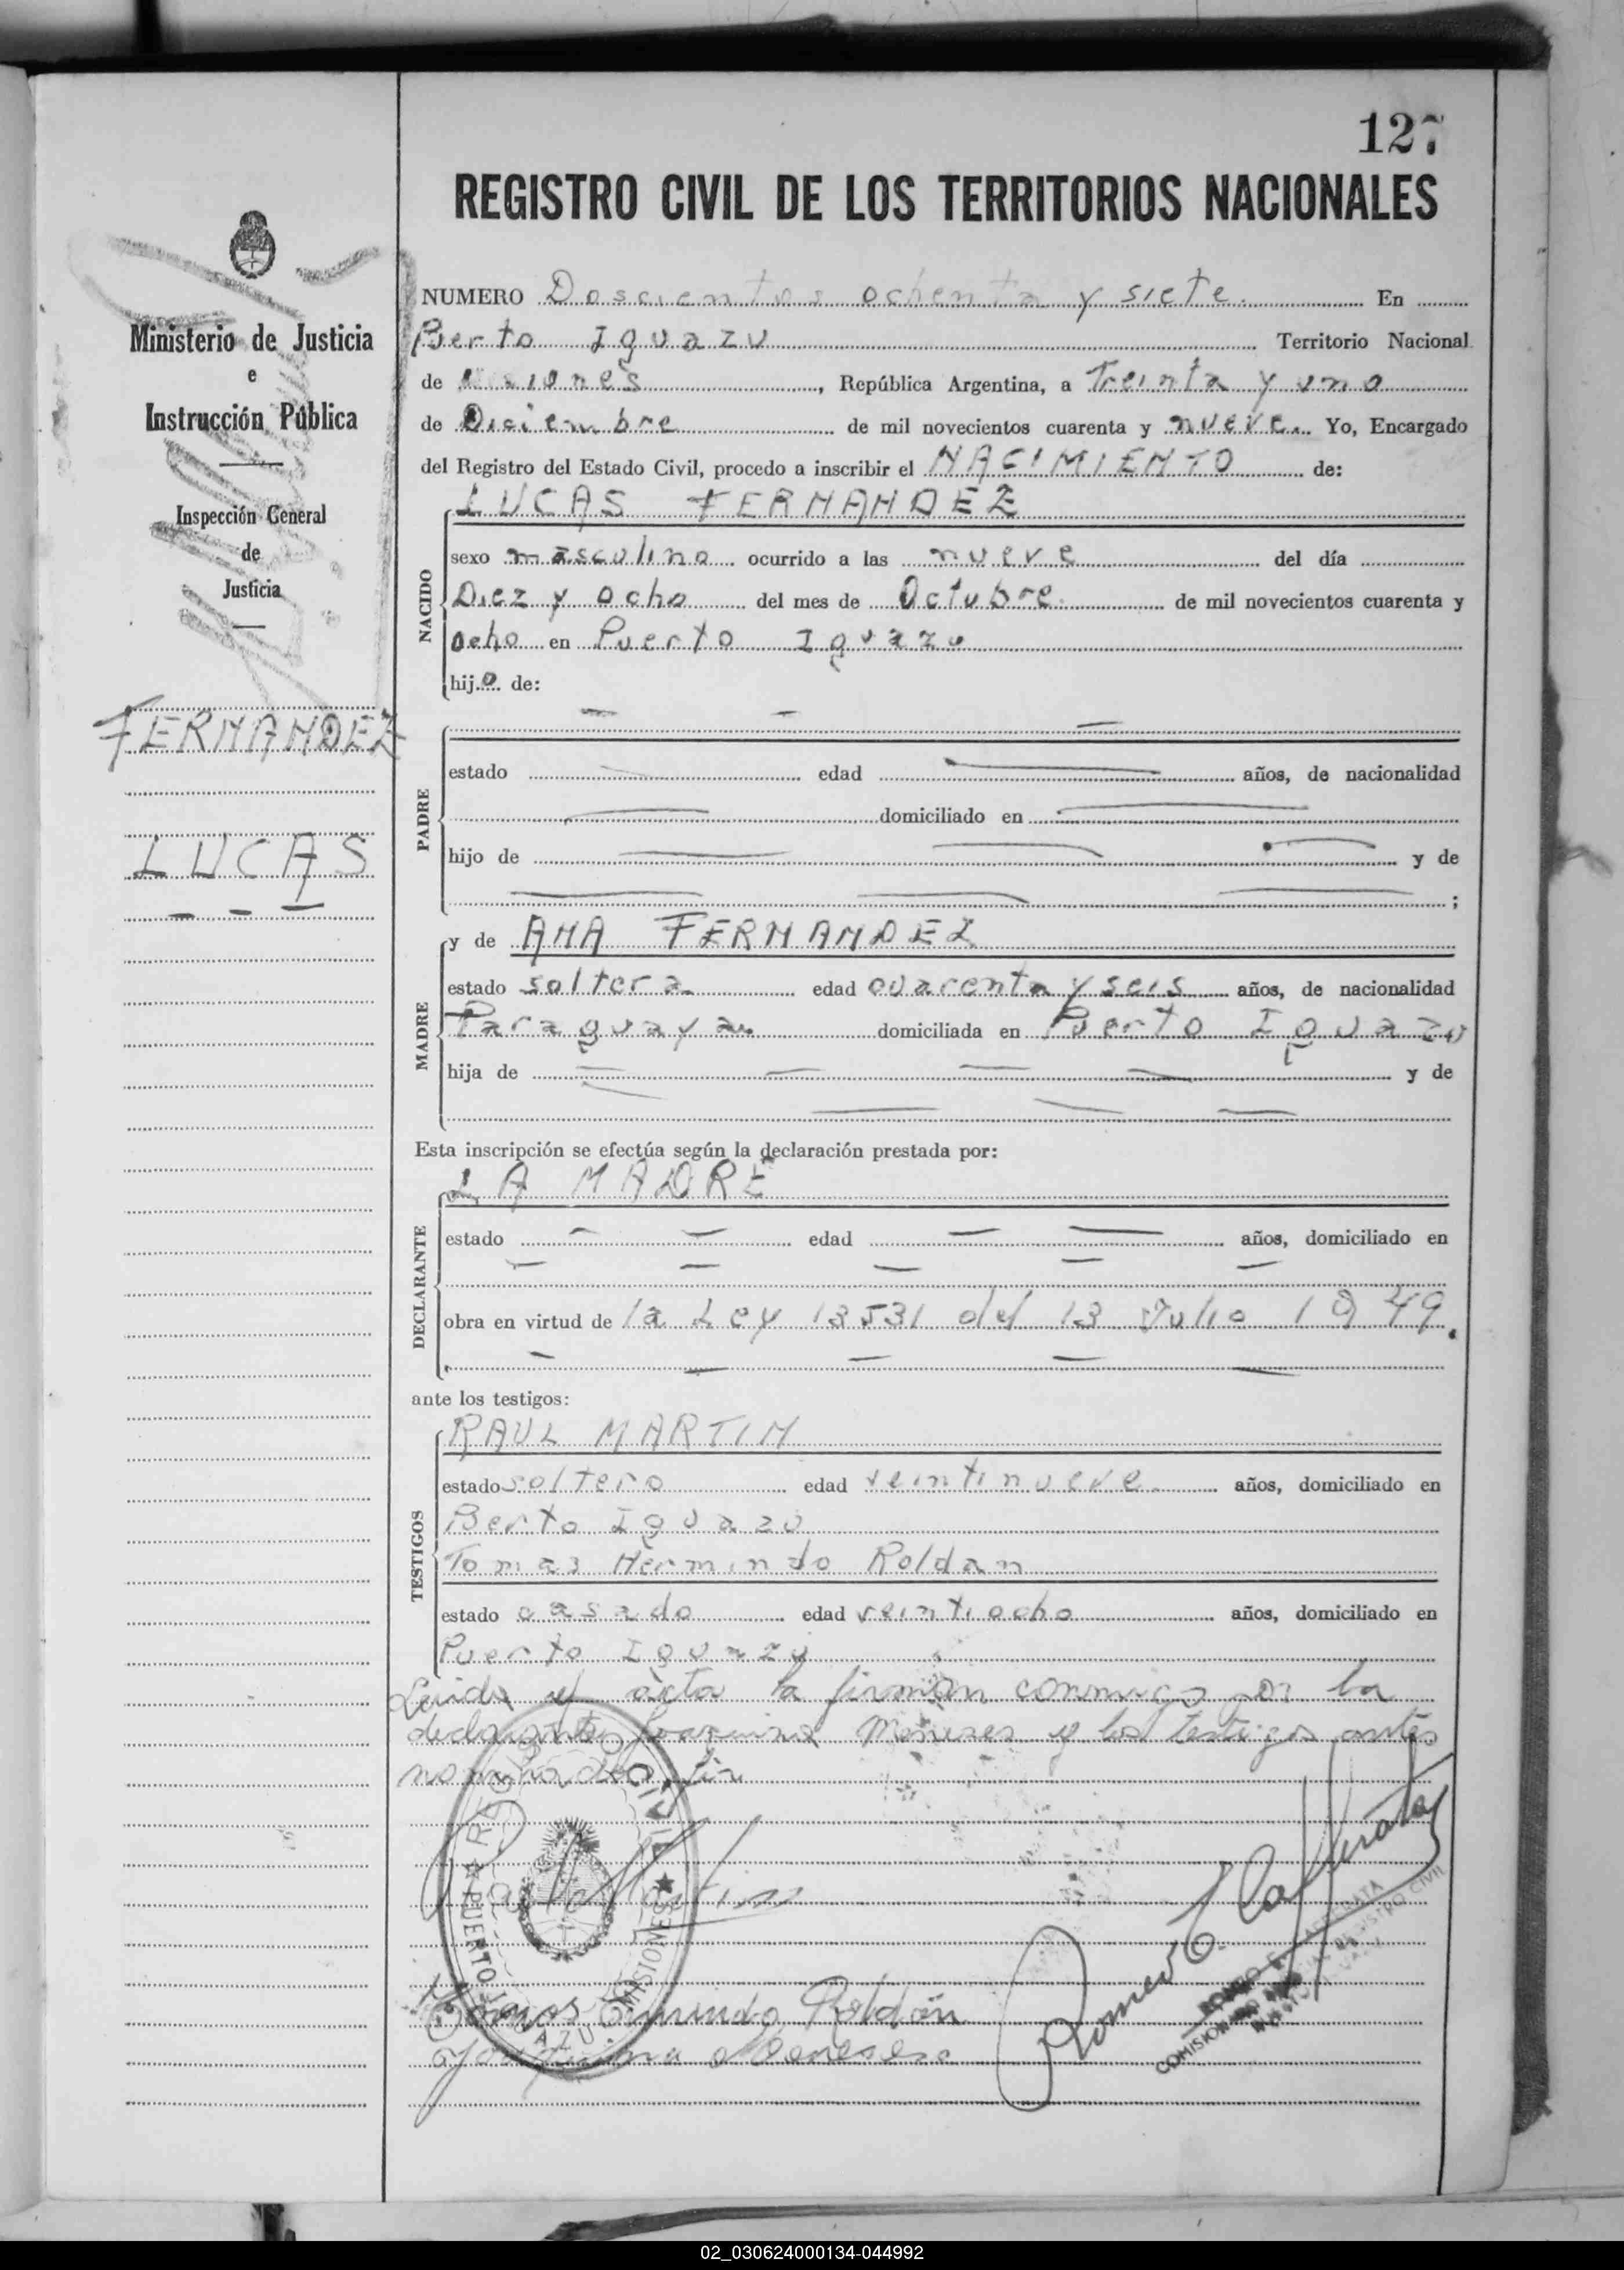 127
REGISTRO CIVIL DE LOS TERRITORIOS NACIONALES
Ministerio de Justicia
e
Instrucción Pública
Inspección General
de
Justicia
FERNANDEZ
LUCAS
NUMERO Doscientos ochenta y siete. En
Puerto Iguazu Territorio Nacional
de Misiones, República Argentina, a Treinta y uno
de Diciembre de mil novecientos cuarenta y nueve. Yo, Encargado
del Registro del Estado Civil, procedo a inscribir el NACIMIENTO de:
NACIDO
LUCAS FERNANDEZ
sexo masculino ocurrido a las nueve del día
Diez y ocho del mes de Octubre. de mil novecientos cuarenta y
ocho en Puerto Iguazu
hijo de:
PADRE
estado edad años, de nacionalidad
domiciliado en
hijo de y de
;
MADRE
y de ANA FERNANDEZ
estado soltera edad cuarenta y seis años, de nacionalidad
Paraguaya domiciliada en Puerto Iguazu
hija de y de
Esta inscripción se efectúa según la declaración prestada por:
DECLARANTE
LA MADRE
estado edad años, domiciliado en
obra en virtud de la Ley 13531 del 13 Julio 1949.
ante los testigos:
TESTIGOS
RAUL MARTIN
estado soltero edad veintinueve. años, domiciliado en
Puerto Iguazu
Tomas Hermindo Roldan
estado casado edad veintiocho años, domiciliado en
Puerto Iguazu
Leida el acta la firman conmigo por la
declarante Joaquina Meneses y los testigos antes
nominados
REGISTRO CIVIL
PUERTO IGUAZU MISIONES
Tomas Ermindo Roldán
Joaquina Meneses
Romeo E.
COMISIONADO
REGISTRO CIVIL
02_030624000134-044992